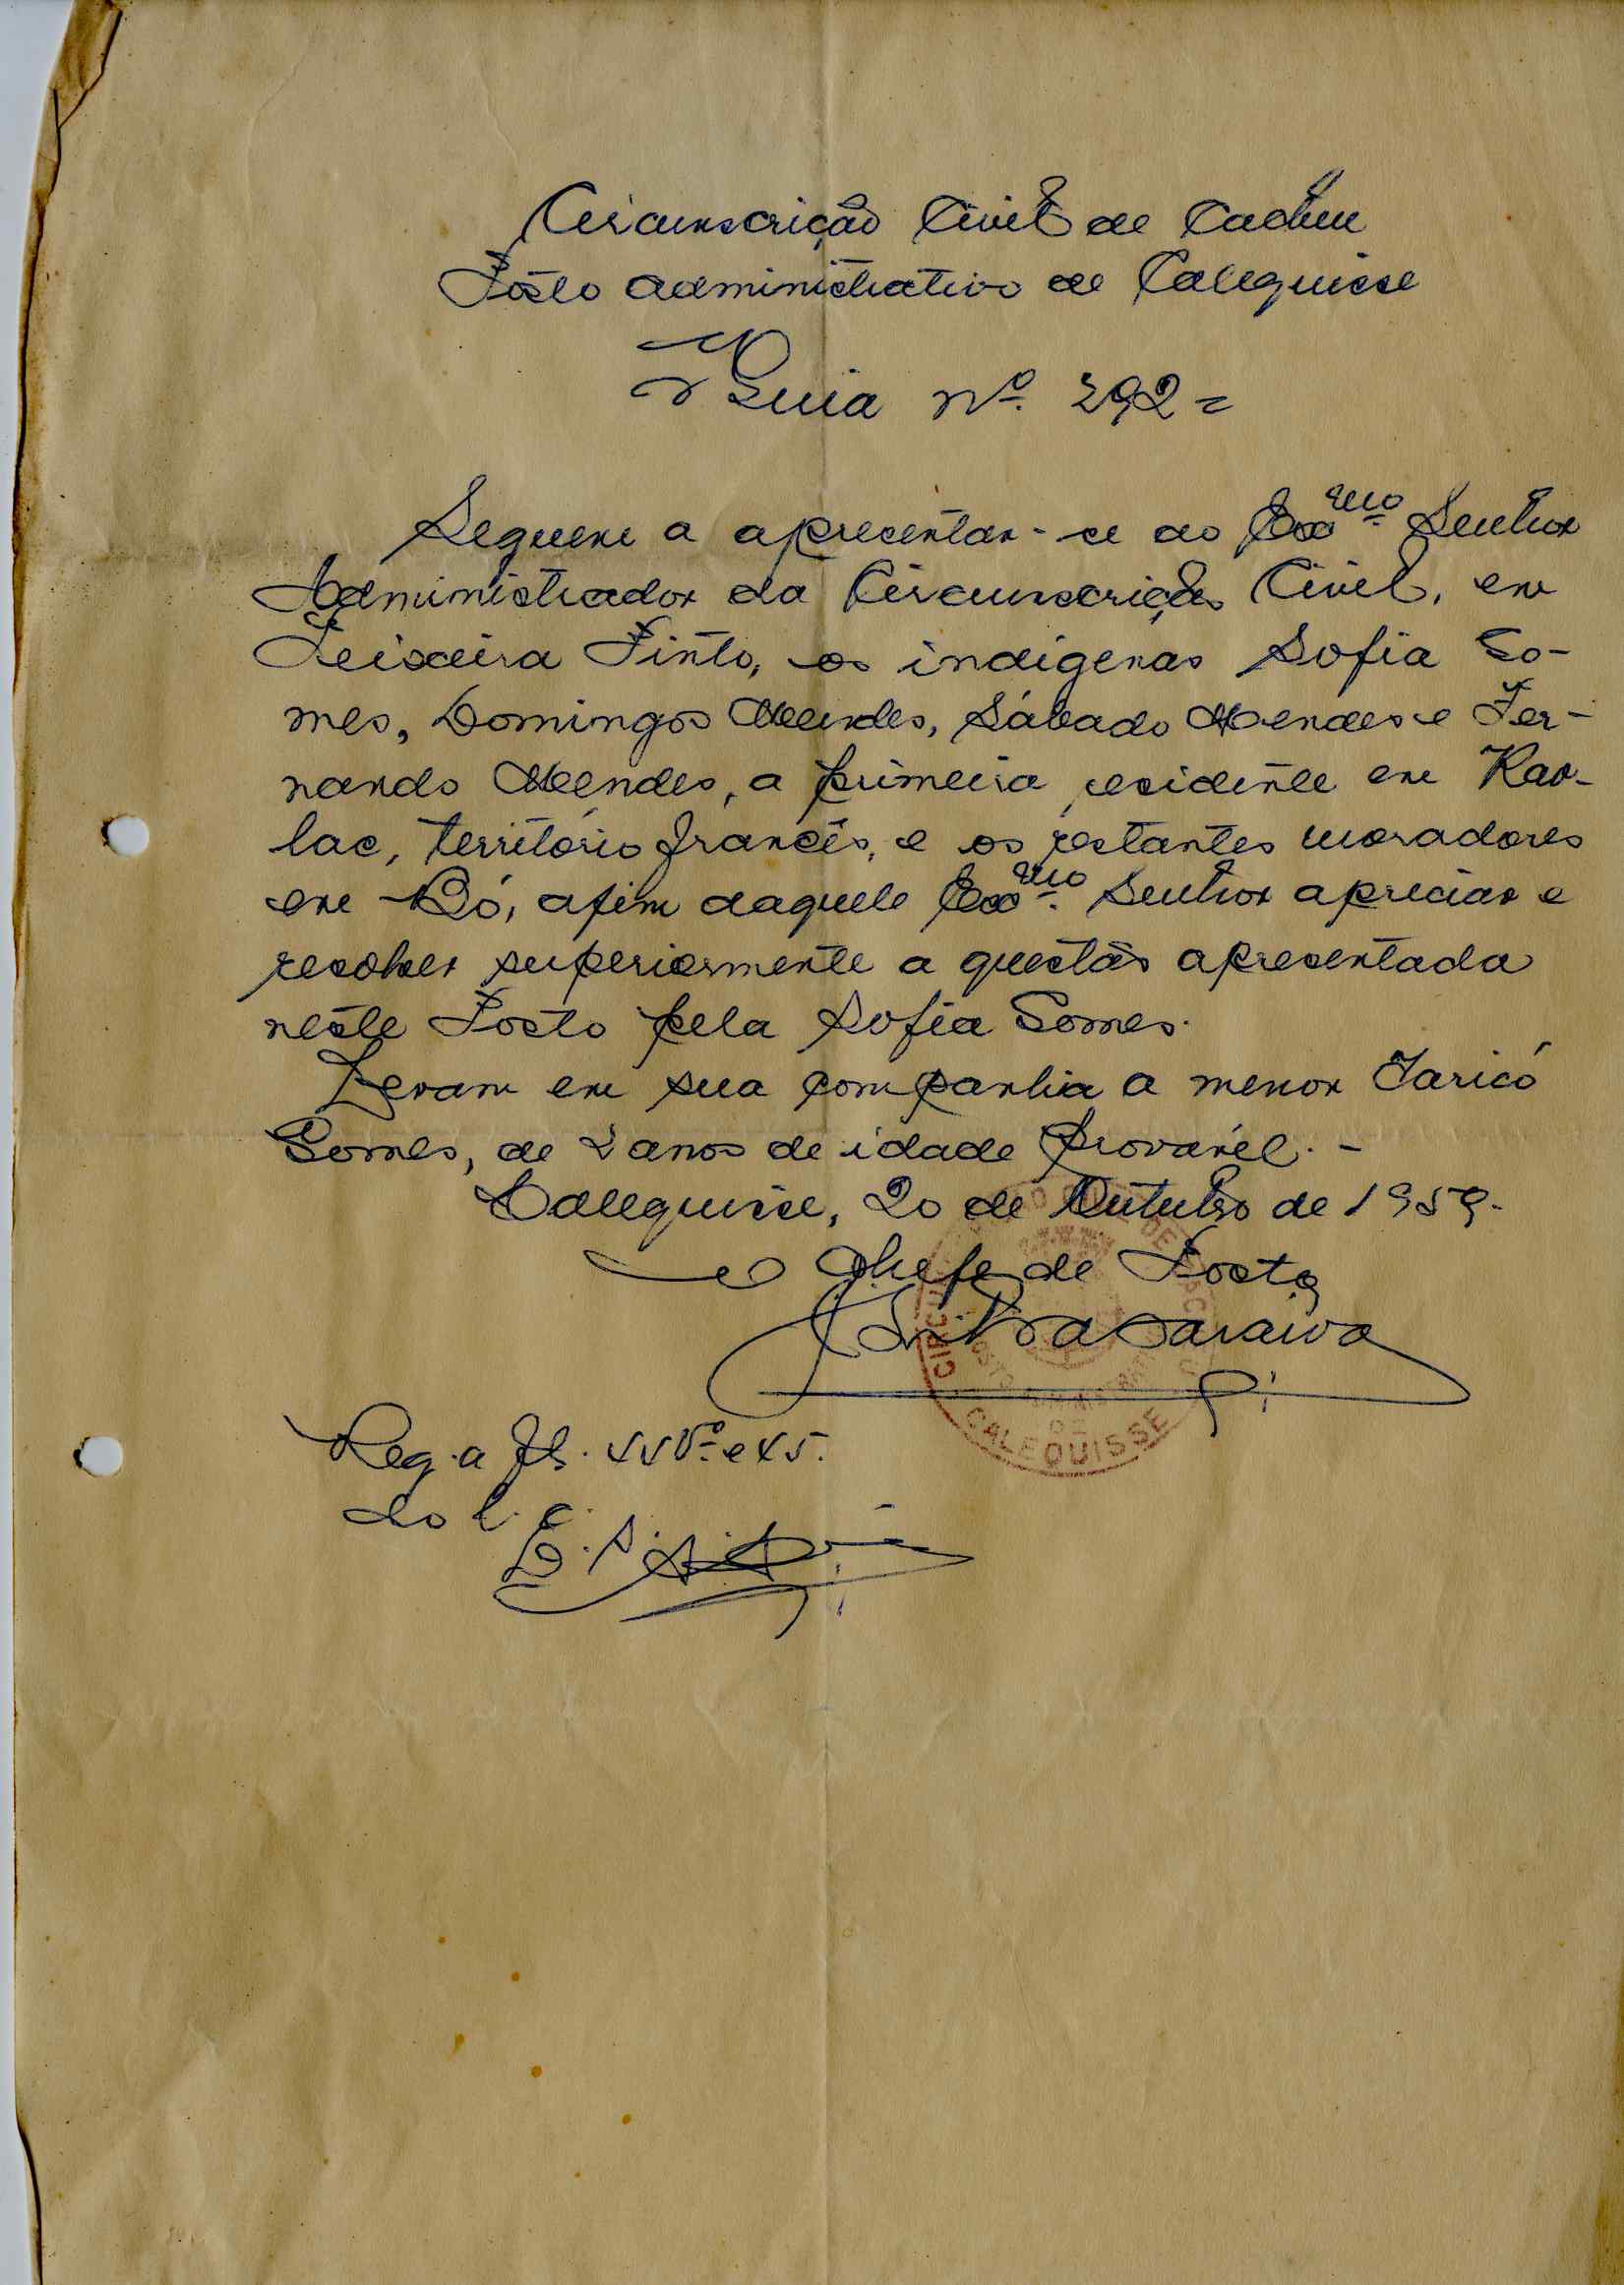 Circunscrição Civil de Cacheu
Pôsto Administrativo de Calequisse
Guia Nº. 292 =
Seguem a apresentar-se ao Exᵐᵒ. Senhor
Administrador da Circunscrição Civil, em
Teixeira Pinto, os indígenas Sofia Go-
mes, Domingos Mendes, Sábado Mendes e Fer-
nando Mendes, a primeira residente em Kao-
lac, território francês, e os restantes moradores
em Bó, afim daquele Exᵐᵒ. Senhor apreciar e
resolver superiormente a questão apresentada
neste Posto pela Sofia Gomes.
Levam em sua companhia a menor Taricó
Gomes, de 2 anos de idade provável. -
Calequisse, 20 de Outubro de 1959.
O Chefe de Posto,
Saraiva
Reg. a fls. 44Vº. e 45.
do l. c.
CALEQUISSE